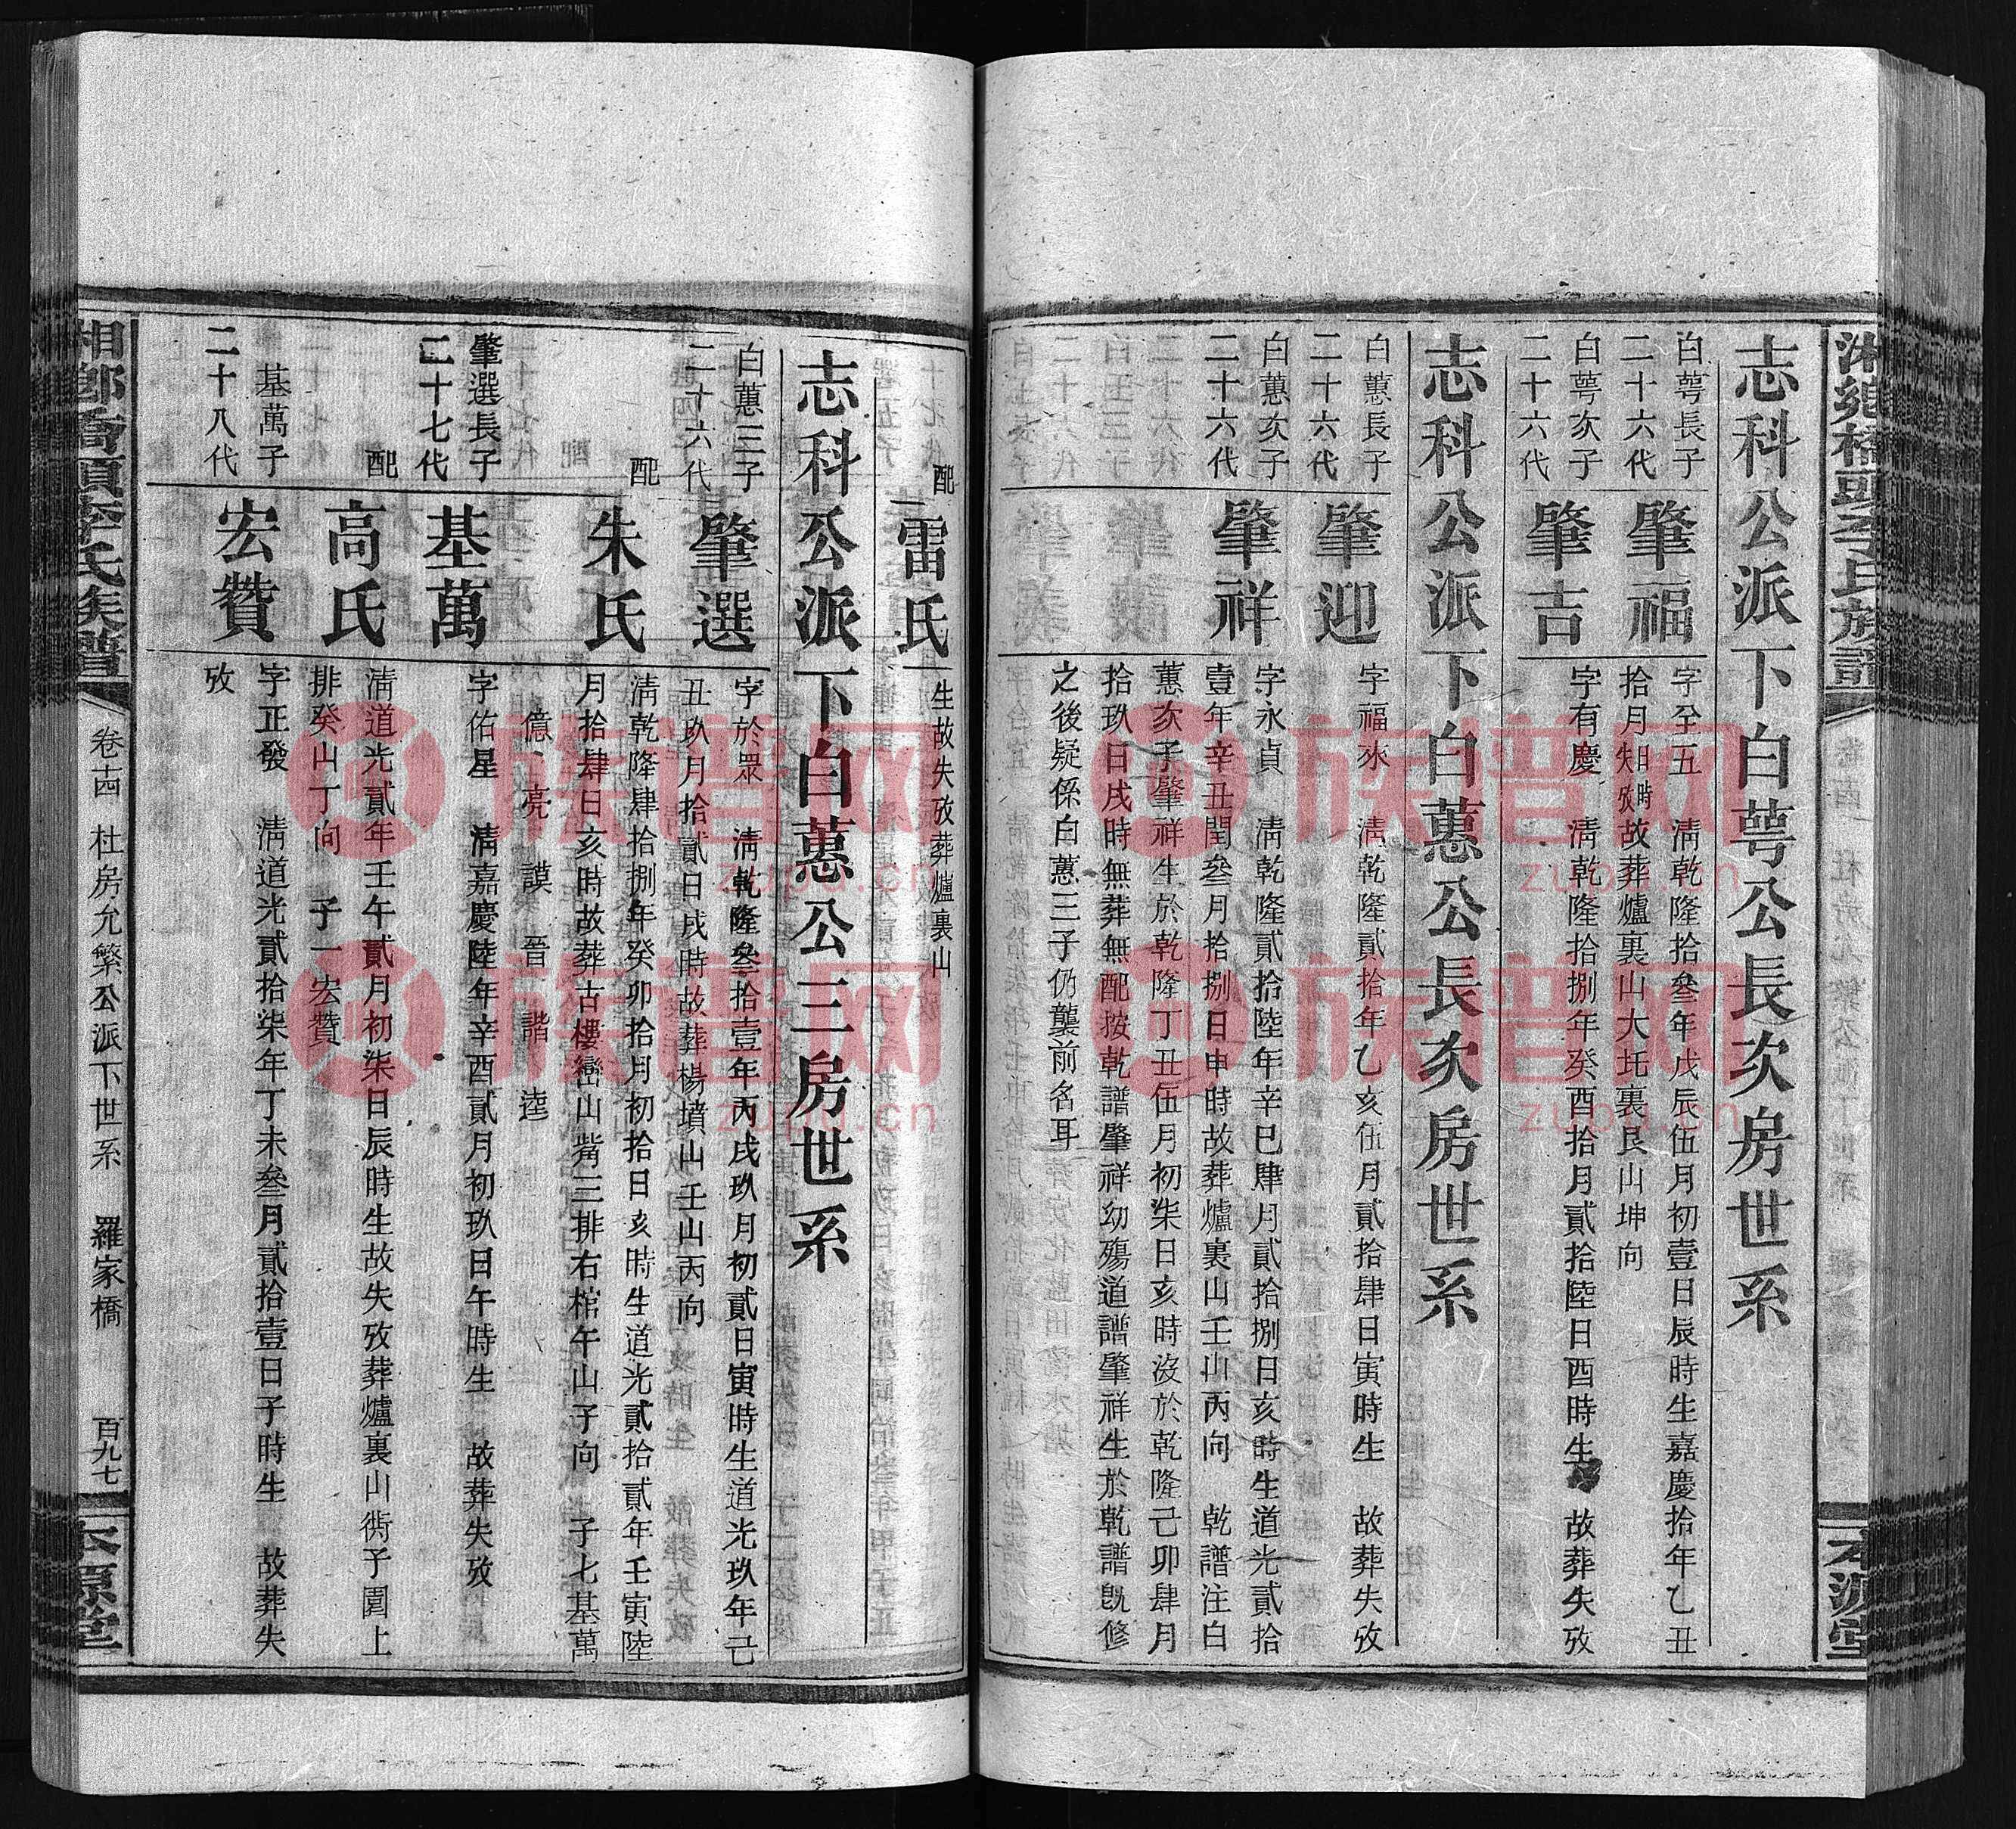 湘鄉橋頭李氏族譜
本源堂
志科公派下白萼公長次房世系
白萼長子
二十六代
肇福
字至五　清乾隆拾叄年戊辰伍月初壹日辰時生嘉慶拾年乙丑
拾月知日時攷故葬爐裏山大坵裏艮山坤向
白萼次子
二十六代
肇吉
字有慶　清乾隆拾捌年癸酉拾月貳拾陸日酉時生　故葬失攷
志科公派下白蕙公長次房世系
白蕙長子
二十六代
肇迎
字福來　清乾隆貳拾年乙亥伍月貳拾肆日寅時生　故葬失攷
白蕙次子
二十六代
肇祥
字永貞　清乾隆貳拾陸年辛巳肆月貳拾捌日亥時生道光貳拾
壹年辛丑閏叄月拾捌日申時故葬爐裏山壬山丙向　乾譜注白
蕙次子肇祥生於乾隆丁丑伍月初柒日亥時沒於乾隆己卯肆月
拾玖日戌時無葬無配按乾譜肇祥幼殤道譜肇祥生於乾譜既修
之後疑係白蕙三子仍襲前名耳
配
雷氏
生故失攷葬爐裏山
志科公派下白蕙公三房世系
白蕙三子
二十六代
肇選
字於眾　清乾隆叄拾壹年丙戌玖月初貳日寅時生道光玖年己
丑玖月拾貳日戌時故葬楊墳山壬山丙向
配
朱氏
清乾隆肆拾捌年癸卯拾月初拾日亥時生道光貳拾貳年壬寅陸
月拾肆日亥時故葬古樓巒山觜三排右棺午山子向　子七基萬
億　亮　謨　晉　諧　逵
肇選長子
二十七代
基萬
字佑星　清嘉慶陸年辛酉貳月初玖日午時生　故葬失攷
配
高氏
清道光貳年壬午貳月初柒日辰時生故失攷葬爐裏山衖子圍上
排癸山丁向　子一宏贊
基萬子
二十八代
宏贊
字正發　清道光貳拾柒年丁未叄月貳拾壹日子時生　故葬失
攷
湘鄉橋頭李氏族譜
卷十四　杜房允繁公派下世系　羅家橋
百九七
本源堂
族谱网
zupu.cn
族谱网
zupu.cn
族谱网
zupu.cn
族谱网
zupu.cn